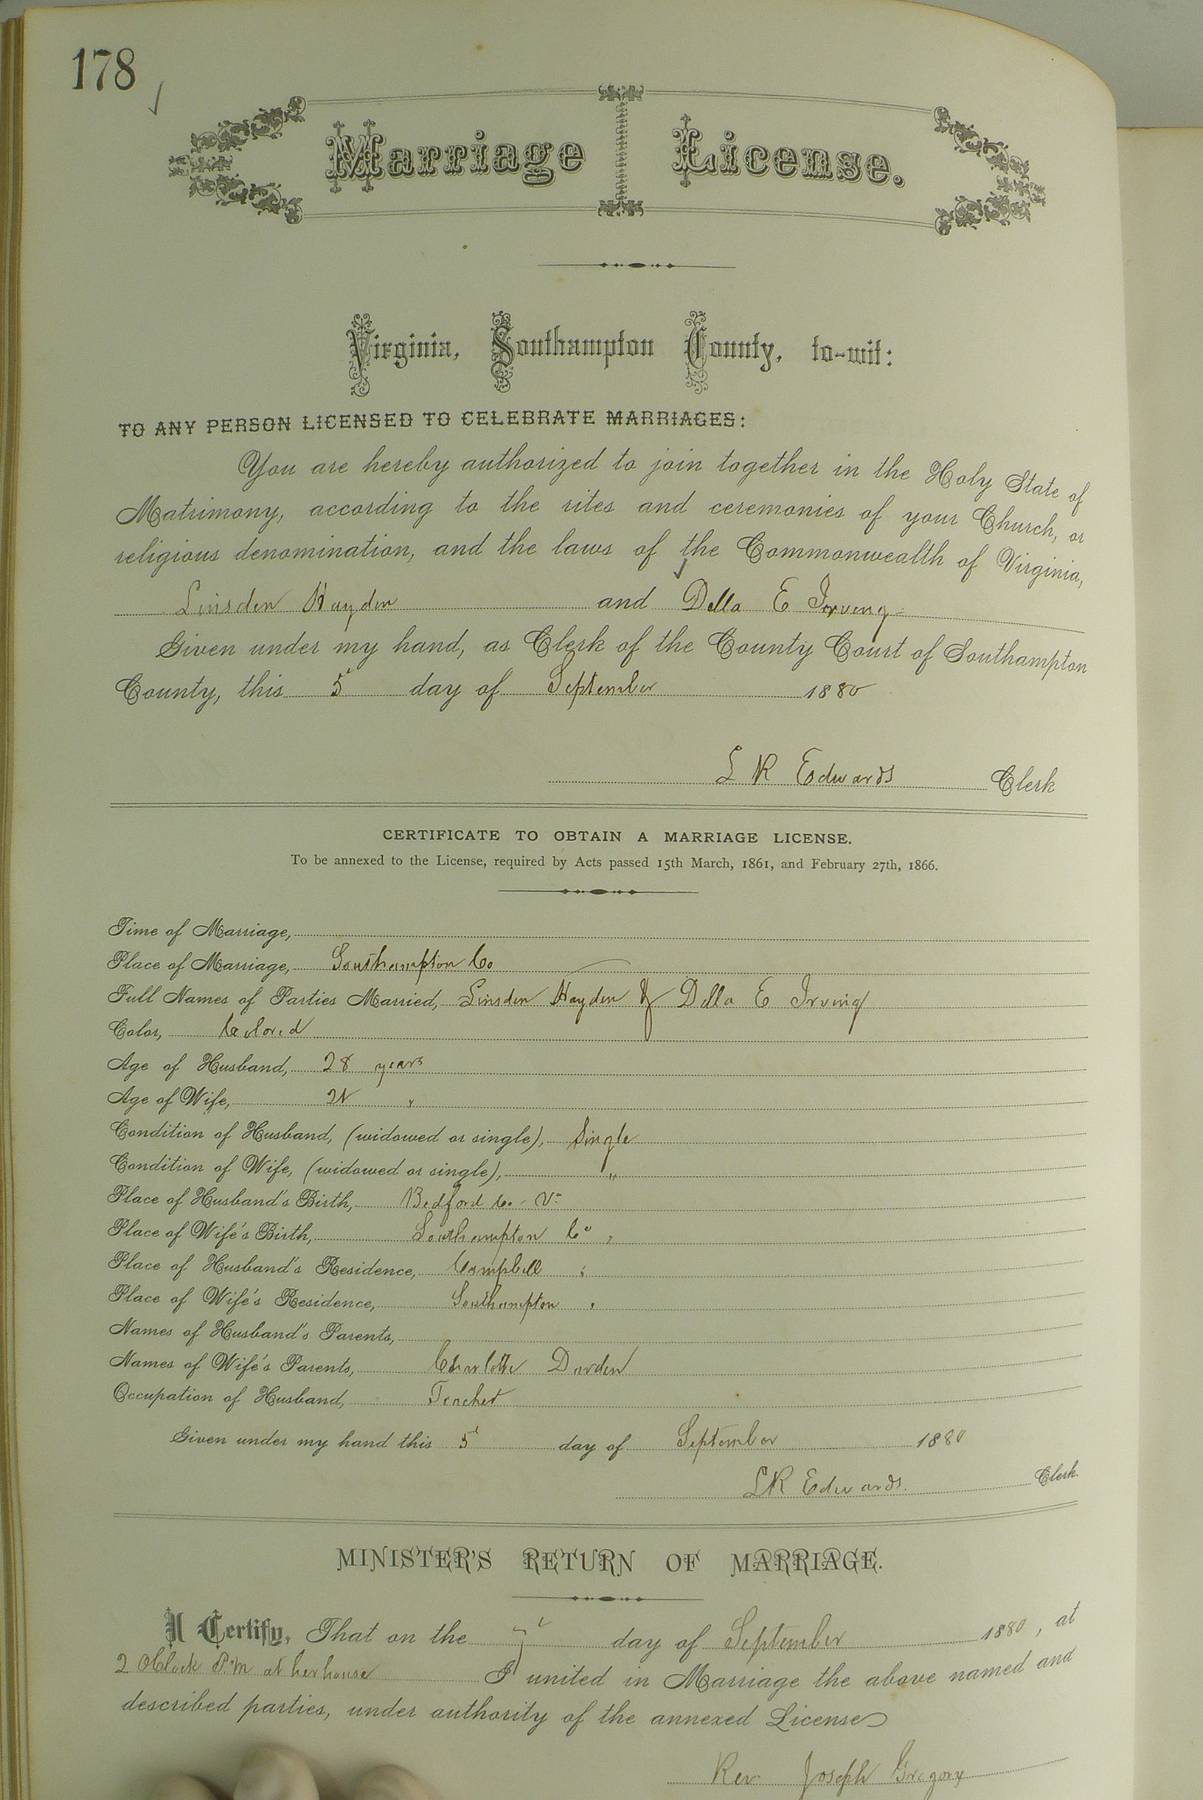 178
Marriage License.
Virginia, Southampton County, to-wit:
TO ANY PERSON LICENSED TO CELEBRATE MARRIAGES:
You are hereby authorized to join together in the Holy State of
Matrimony, according to the rites and ceremonies of your Church, or
religious denomination, and the laws of the Commonwealth of Virginia,
Linsden Hayden and Della E Irving
Given under my hand, as Clerk of the County Court of Southampton
County, this 5 day of September 1880
L R Edwards Clerk
CERTIFICATE TO OBTAIN A MARRIAGE LICENSE.
To be annexed to the License, required by Acts passed 15th March, 1861, and February 27th, 1866.
Time of Marriage,
Place of Marriage, Southampton Co
Full Names of Parties Married, Linsden Hayden & Della E Irving
Color, Colored
Age of Husband, 28 years
Age of Wife, "
Condition of Husband, (widowed or single), Single
Condition of Wife, (widowed or single), "
Place of Husband's Birth, Bedford Co. Va
Place of Wife's Birth, Southampton Co "
Place of Husband's Residence, Campbell "
Place of Wife's Residence, Southampton "
Names of Husband's Parents,
Names of Wife's Parents, Charlotte Darden
Occupation of Husband, Teacher
Given under my hand this 5 day of September 1880
L R Edwards. Clerk
MINISTER'S RETURN OF MARRIAGE.
I Certify, That on the 7 day of September 1880, at
2 Oclock P.M at her house I united in Marriage the above named and
described parties, under authority of the annexed License
Rev Joseph Gregory